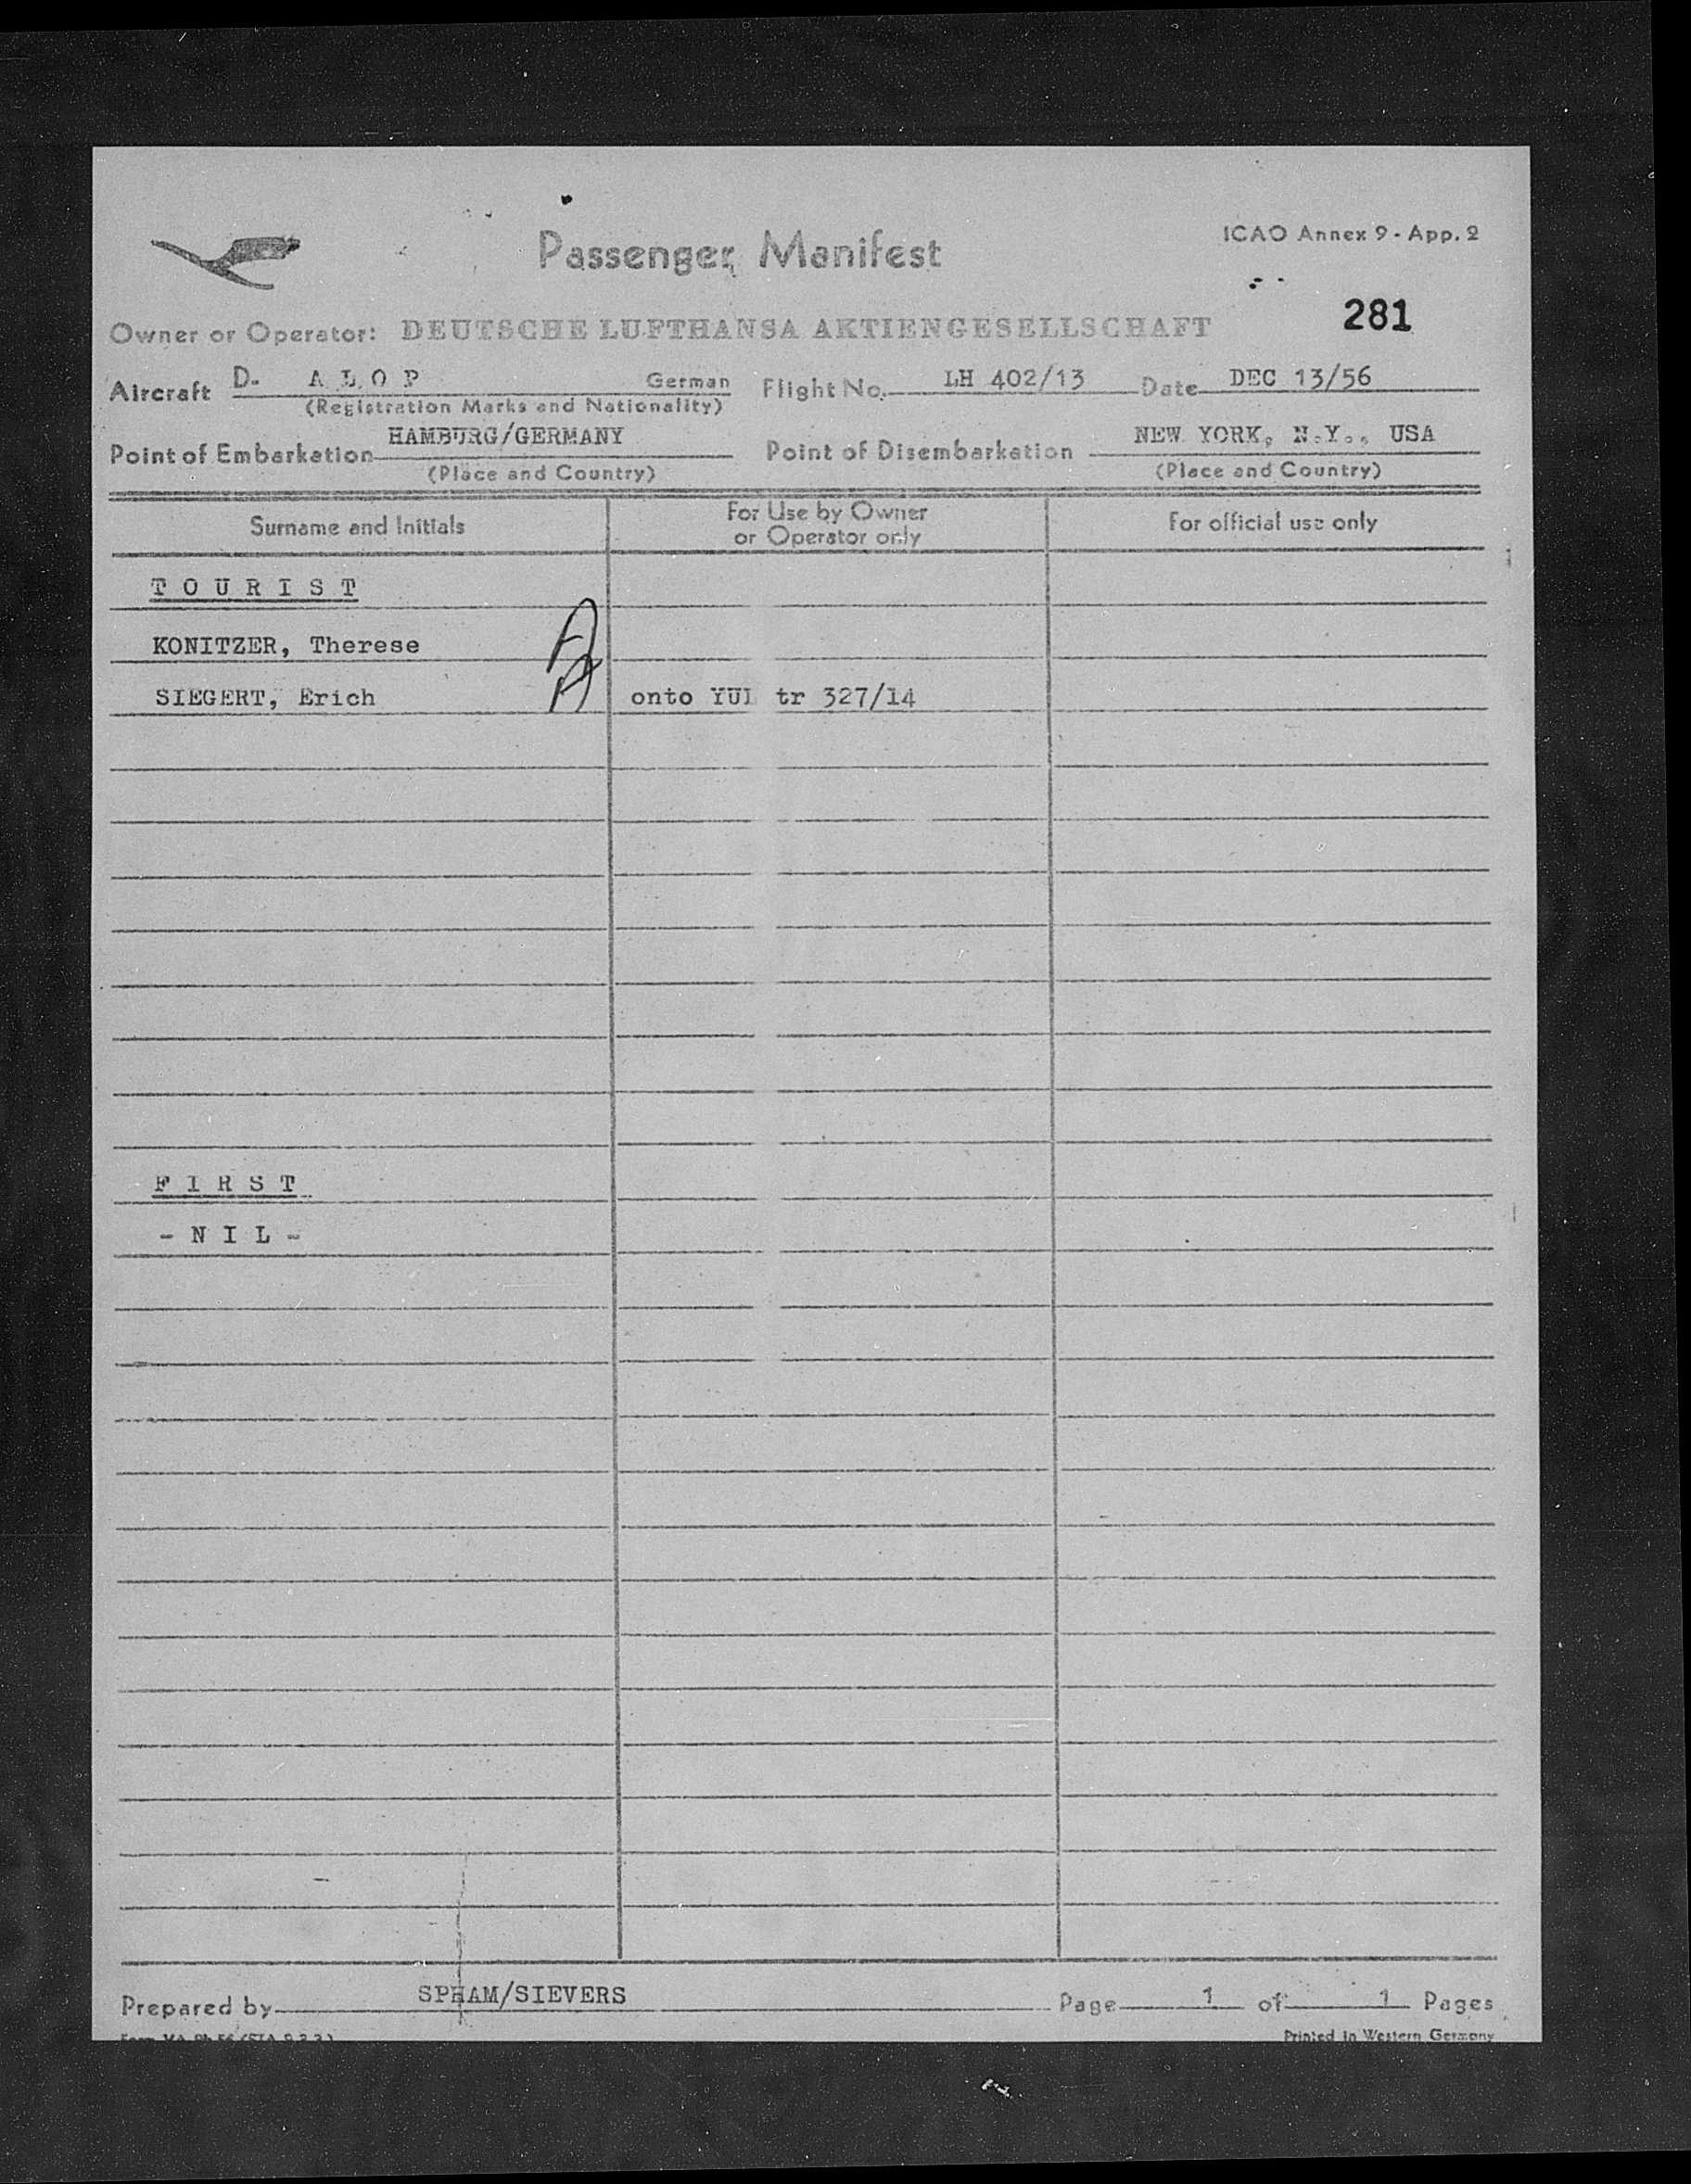 Passenger Manifest
ICAO Annex 9 - App. 2
281
Owner or Operator: DEUTSCHE LUFTHANSA AKTIENGESELLSCHAFT
Aircraft D- A L O P German Flight No. LH 402/13 Date DEC 13/56
(Registration Marks and Nationality)
Point of Embarkation HAMBURG/GERMANY Point of Disembarkation NEW YORK, N.Y., USA
(Place and Country) (Place and Country)
Surname and Initials
For Use by Owner
or Operator only
For official use only
T O U R I S T
KONITZER, Therese
SIEGERT, Erich onto YUL tr 327/14
F I R S T
- N I L -
Prepared by SPHAM/SIEVERS Page 1 of 1 Pages
Printed in Western Germany